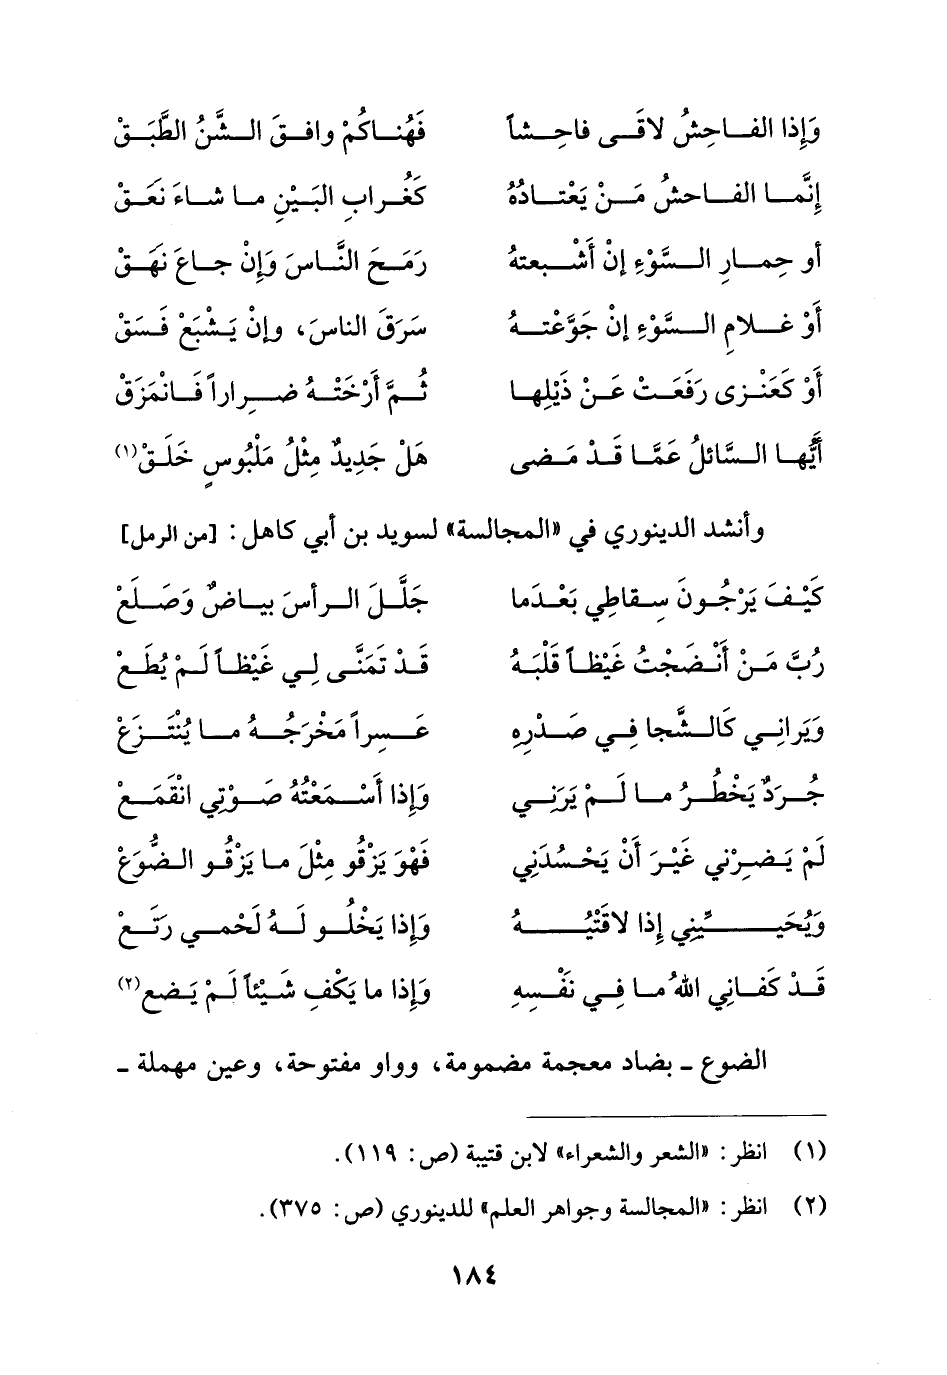 وَإِذا الفـاحِشُ لاقَـى فاحِـشاً فَهُنـاكُمْ وافـقَ الـشَّنُ الطَّبَـقْ
إِنَّمـا الفـاحشُ مَـنْ يَعْتـادُهُ كَغُـرابِ البَيْنِ مـا شاءَ نَعَـقْ
أو حِمـارِ الـسَّوْءِ إنْ أَشْـبعتهُ رَمَـحَ النَّـاسَ وَإِنْ جـاعَ نَهَـقْ
أَوْ غـلامِ الـسَّوْءِ إنْ جَوَّعْتـهُ سَرَقَ الناسَ، وإنْ يَـشْبَعْ فَـسَقْ
أَوْ كَعَنْـزى رَفَعَـتْ عَـنْ ذَيْلِهـا ثُـمَّ أَرْخَتْـهُ ضِـراراً فَـانْمَزَقْ
أَيُّهـا الـسَّائلُ عَمَّـا قَـدْ مَـضى هَلْ جَديدٌ مِثْلُ مَلْبُوسٍ خَلَقْ(١)
وأنشد الدينوري في «المجالسة» لسويد بن أبي كاهل: [من الرمل]
كَيْـفَ يَرْجُـونَ سِـقاطِي بَعْـدَما جَلَّـلَ الـرأسَ بيـاضٌ وَصَـلَعْ
رُبَّ مَـنْ أَنْـضَجْتُ غَيْظـاً قَلْبَـهُ قَـدْ تَمَنَّـى لِـي غَيْظـاً لَـمْ يُطَـعْ
وَيَرانِـي كَالـشَّجا فِـي صَـدْرِهِ عَـسِراً مَخْرَجُـهُ مـا يُنْتَـزَعْ
جُـرَدٌ يَخْطُـرُ مـا لَـمْ يَرَنِـي وَإِذا أَسْـمَعْتُهُ صَـوْتِي انْقَمَـعْ
لَمْ يَـضِرْني غَيْـرَ أَنْ يَحْـسُدَنِي فَهْوَ يَزْقُو مِثْلَ ما يَزْقُـو الـضُّوَعْ
وَيُحَيِّـينِي إِذا لاقَيْتُـهُ وَإِذا يَخْلُـو لَـهُ لَحْمـي رَتَـعْ
قَـدْ كَفـانِي اللهُ مـا فِـي نَفْـسِهِ وَإِذا ما يَكْفِ شَيْئاً لَـمْ يَـضع(٢)
الضوع ـ بضاد معجمة مضمومة، وواو مفتوحة، وعين مهملة ـ
(١) انظر: «الشعر والشعراء» لابن قتيبة (ص: ١١٩).
(٢) انظر: «المجالسة وجواهر العلم» للدينوري (ص: ٣٧٥).
١٨٤